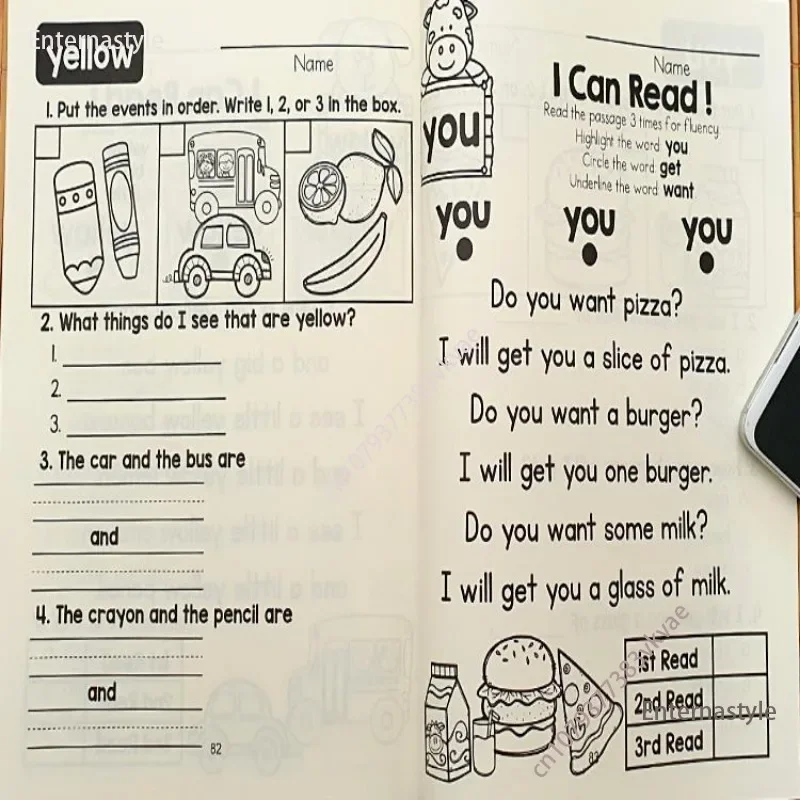 Enternastyle
yellow
Name
1. Put the events in order. Write 1, 2, or 3 in the box.
2. What things do I see that are yellow?
1.
2.
3.
3. The car and the bus are
and
4. The crayon and the pencil are
and
82
you
Name
I Can Read!
Read the passage 3 times for fluency
Highlight the word you
Circle the word get
Underline the word want
you you you
Do you want pizza?
I will get you a slice of pizza.
Do you want a burger?
I will get you one burger.
Do you want some milk?
I will get you a glass of milk.
1st Read
2nd Read
3rd Read
Enternastyle
83